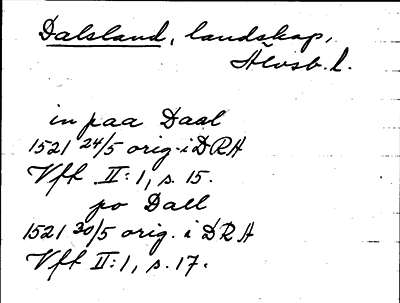 Dalsland, landskap,
Älvsb. l.
in paa Daal
1521 24/5 orig. i DRA
Vfh II:1, s. 15.
po Dall
1521 30/5 orig. i DRA
Vfh II:1, s. 17.